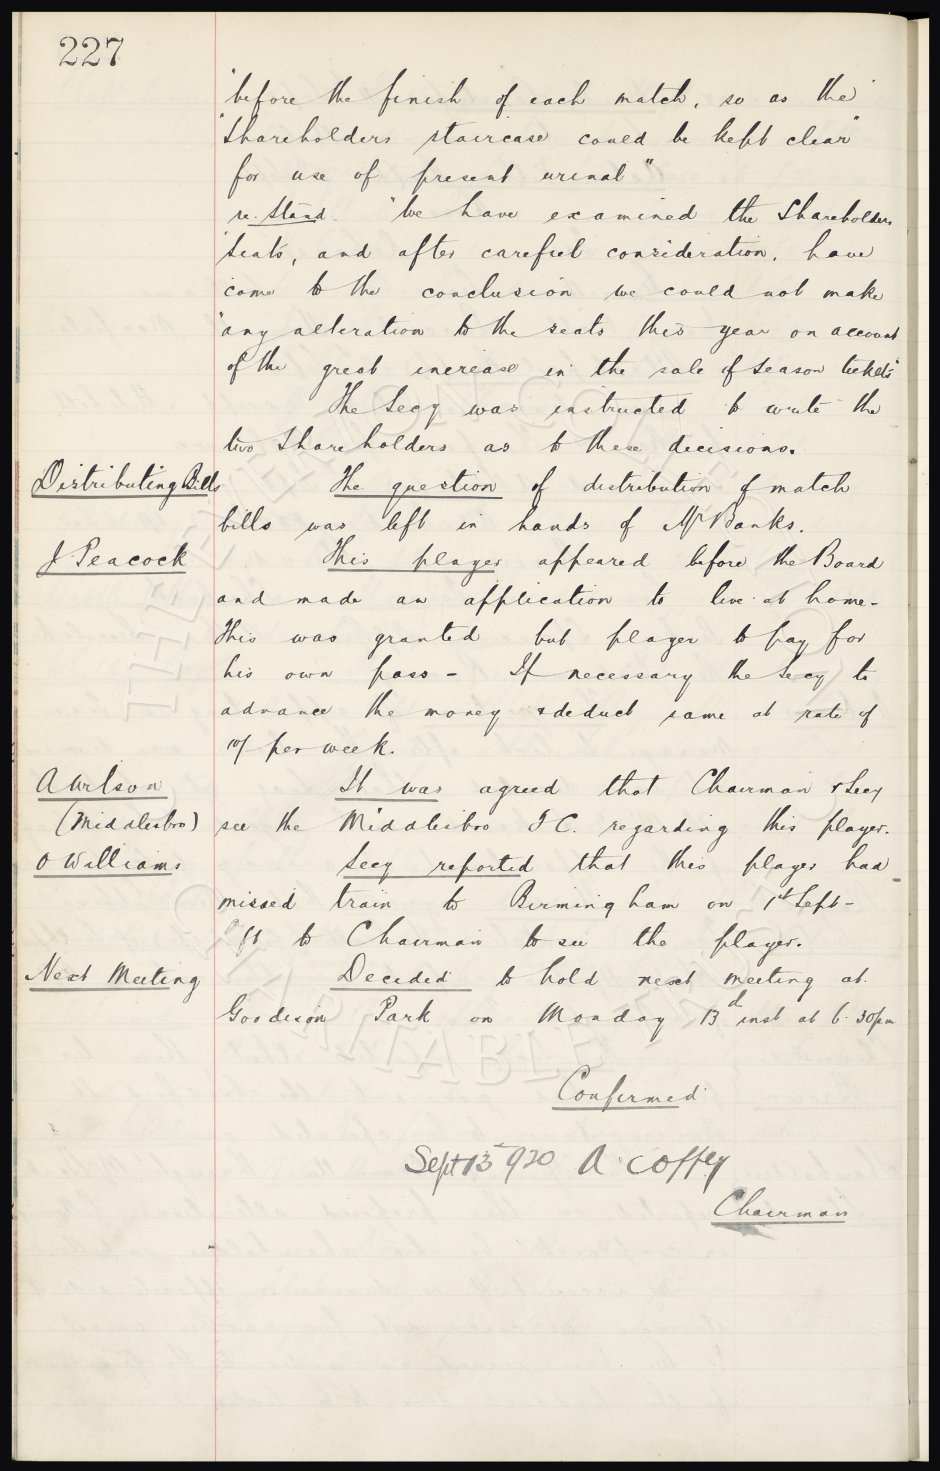 227
"before the finish of each match, so as the"
"Shareholders staircase could be kept clear"
for use of present urinal"
re. Stand. "We have examined the Shareholders
"Seats, and after careful consideration, have
come to the conclusion we could not make
"any alteration to the seats this year on account
of the great increase in the sale of Season tickets"
The Secy was instructed to write the
two Shareholders as to these decisions.
Distributing Bills The question of distribution of match
bills was left in hands of Mr Banks.
J Peacock This player appeared before the Board
and made an application to live at home-
This was granted but player to pay for
his own pass - If necessary the Secy to
advance the money & deduct same at rate of
10/ per week.
A Wilson It was agreed that Chairman & Secy
(Middlesbro) see the Middlesbro F C. regarding this player.
O Williams Secy reported that this player had
missed train to Birmingham on 1st Sept-
left to Chairman to see the player.
Next Meeting Decided to hold next meeting at
Goodison Park on Monday 13th inst at 6.30pm
Confirmed
Sept 13 1920 A Coffey
Chairman
THE EVERTON COLLECTION
CHARITABLE TRUST